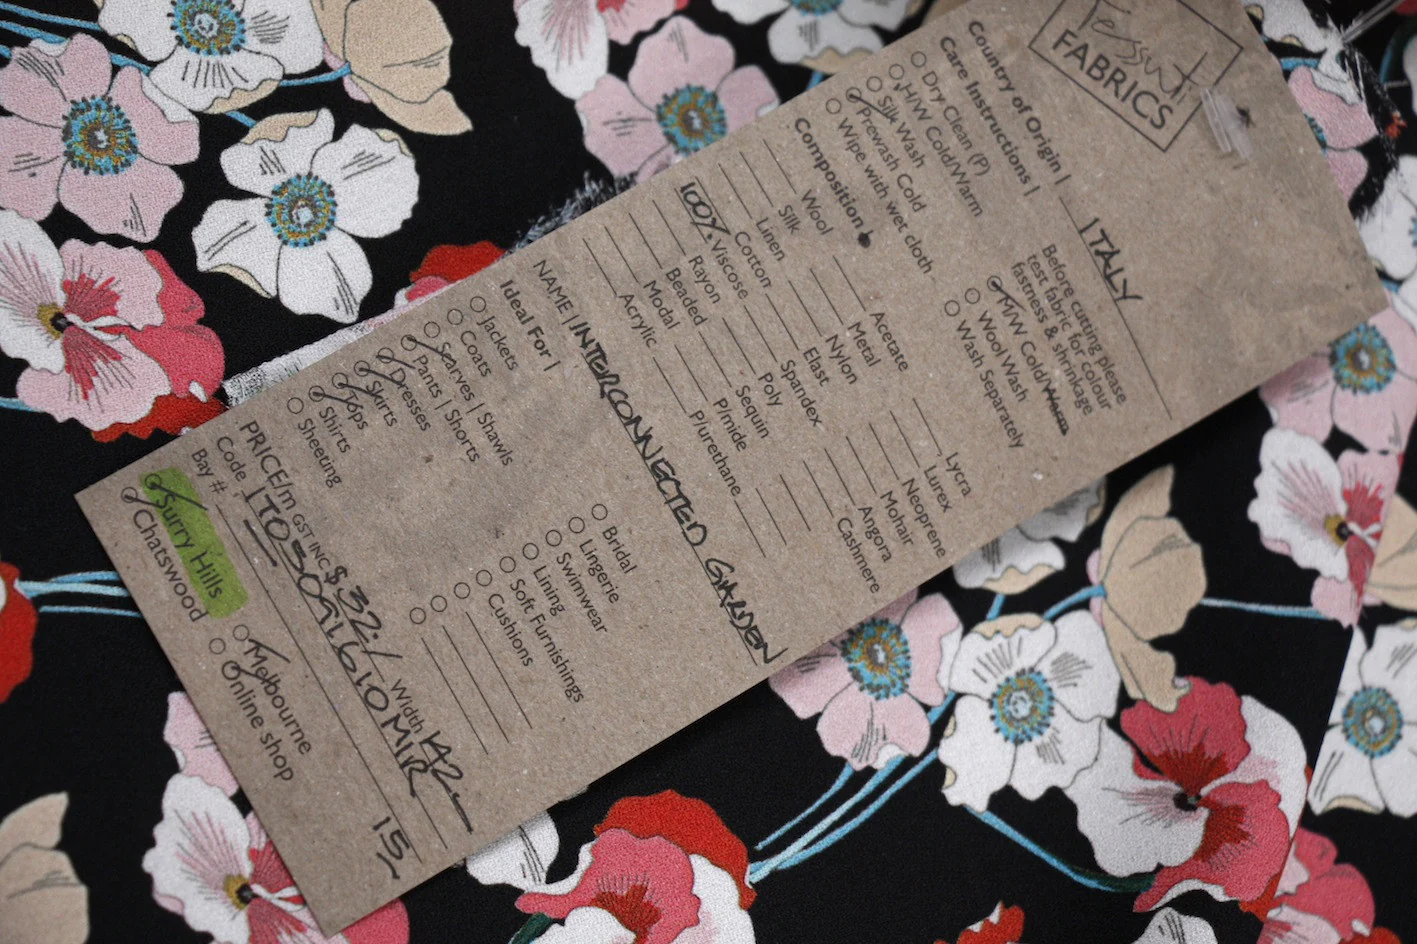 Tessuti
FABRICS
Country of Origin | ITALY
Care Instructions |
Dry Clean (P)
H/W Cold/Warm
Silk Wash
Prewash Cold
Wipe with wet cloth
Before cutting please
test fabric for colour
fastness & shrinkage
M/W Cold/Warm
Wool Wash
Wash Separately
Composition
Wool
Silk
Linen
Cotton
100% Viscose
Rayon
Beaded
Modal
Acrylic
Acetate
Metal
Nylon
Elast
Spandex
Poly
Sequin
P/mide
P/urethane
Lycra
Lurex
Neoprene
Mohair
Angora
Cashmere
NAME | INTERCONNECTED GARDEN
Ideal For |
Jackets
Coats
Scarves | Shawls
Pants | Shorts
Dresses
Skirts
Tops
Shirts
Sheeting
Bridal
Lingerie
Swimwear
Lining
Soft Furnishings
Cushions
PRICE/m GST INC $32.- Width 142-
Code ITO30916IOMIR
Bay # 15
Surry Hills
Chatswood
Melbourne
Online shop